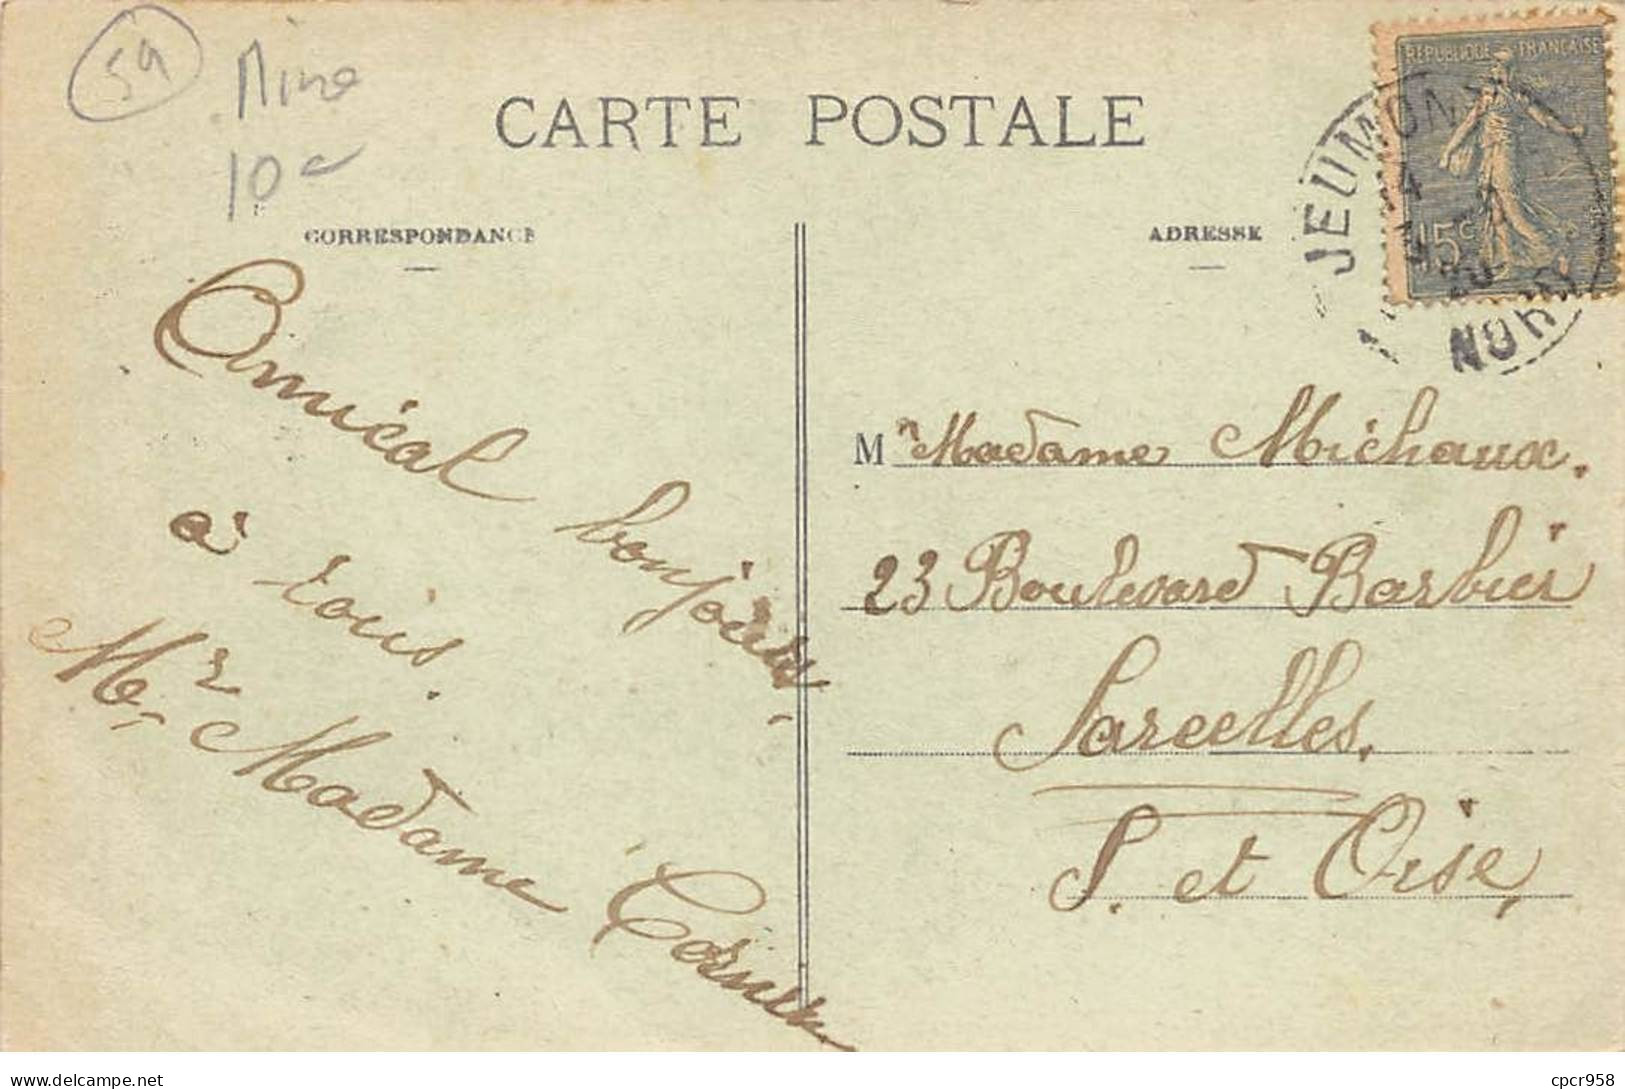 59
Mine
10
CARTE POSTALE
CORRESPONDANCE
ADRESSE
REPUBLIQUE FRANÇAISE
15c
JEUMONT
NORD
Amical bonjour,
à tous.
Mr Madame
M Madame Michaux.
23 Boulevard Barbier
Sarcelles.
S. et Oise,
delcampe.net
cpcr958